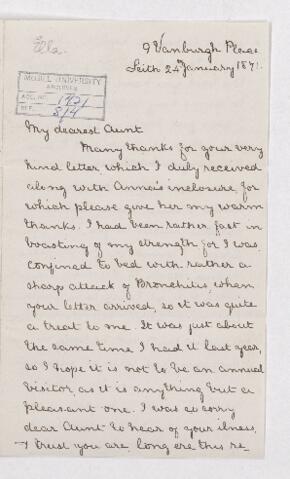 Ela.
9 Vanburgh Place
Leith 24 January 187
McGILL UNIVERSITY
ARCHIVES
ACC. NO. 1421
REF.
My dearest Aunt
Many thanks for your very
kind letter which I duly received
along with Anna's inclosure for
which please give her my warm
thanks. I had been rather fast in
boasting of my strength for I was
confined to bed with rather a
sharp attack of Bronchitis, when
your letter arrived, so it was quite
a treat to me. It was just about
the same time I had it last year,
so I hope it is not to be an annual
visitor, as it is anything but a
pleasant one. I was so sorry
dear Aunt to hear of your ilness,
& trust you are, long ere this re-